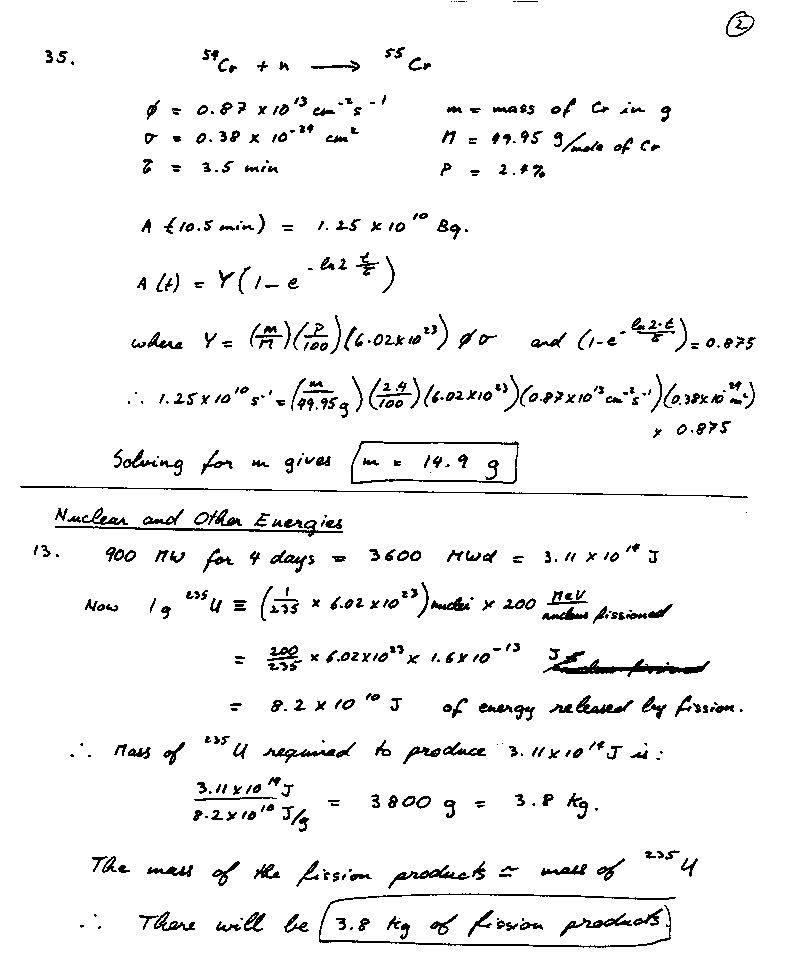 ②
35. ⁵⁴Cr + n ⟶ ⁵⁵Cr
φ = 0.87 × 10¹³ cm⁻²s⁻¹ m = mass of Cr in g
σ = 0.38 × 10⁻²⁴ cm² M = 49.95 g/mole of Cr
τ = 3.5 min P = 2.4%
A (10.5 min) = 1.25 × 10¹⁰ Bq.
A (t) = Y(1 - e^(-ln2 t/τ))
where Y = (m/M)(P/100)(6.02×10²³) φσ and (1-e^(-ln2·t/τ)) = 0.875
∴ 1.25 × 10¹⁰ s⁻¹ = (m/49.95g)(2.4/100)(6.02×10²³)(0.87×10¹³ cm⁻²s⁻¹)(0.38×10⁻²⁴ cm²)
× 0.875
Solving for m gives m = 14.9 g
Nuclear and Other Energies
13. 900 MW for 4 days = 3600 MWd = 3.11 × 10¹⁴ J
Now 1g ²³⁵U ≡ (1/235 × 6.02 × 10²³) nuclei × 200 MeV/nucleus fissioned
= 200/235 × 6.02×10²³ × 1.6×10⁻¹³ J
= 8.2 × 10¹⁰ J of energy released by fission.
∴ Mass of ²³⁵U required to produce 3.11×10¹⁴ J is:
3.11×10¹⁴ J / 8.2×10¹⁰ J/g = 3800 g = 3.8 kg.
The mass of the fission products ≃ mass of ²³⁵U
∴ There will be 3.8 kg of fission products.